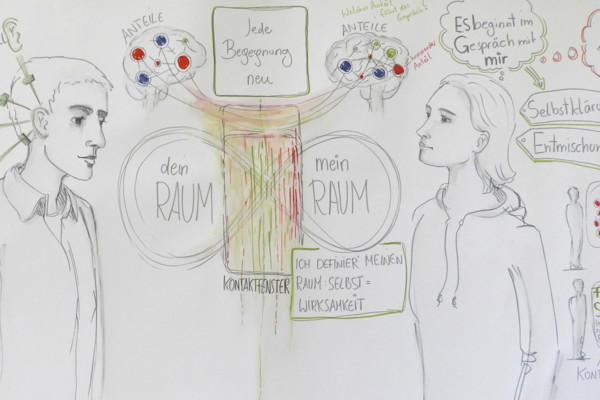 ANTEILE
Jede
Begegnung
neu
Welcher Anteil
führt das
Gespräch?
ANTEILE
Es beginnt im
Gespräch mit
mir
Selbstkläru
Entmischun
dein
RAUM
mein
RAUM
KONTAKTFENSTER
ICH DEFINIER' MEINEN
RAUM: SELBST =
WIRKSAMKEIT
KONT